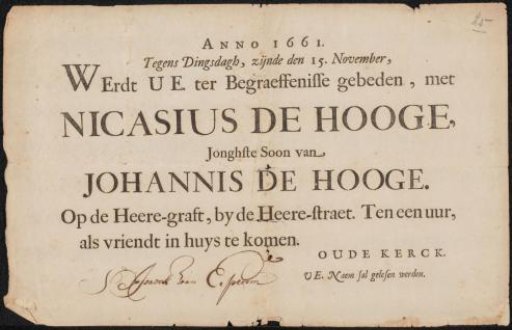 ANNO 1661.
Tegens Dingsdagh, zijnde den 15. November,
WErdt U E ter Begraeffenisse gebeden, met
NICASIUS DE HOOGE,
Jonghste Soon van
JOHANNIS DE HOOGE.
Op de Heere-graft, by de Heere-straet. Ten een uur,
als vriendt in huys te komen.
OUDE KERCK.
UE. Naem sal gelesen werden.